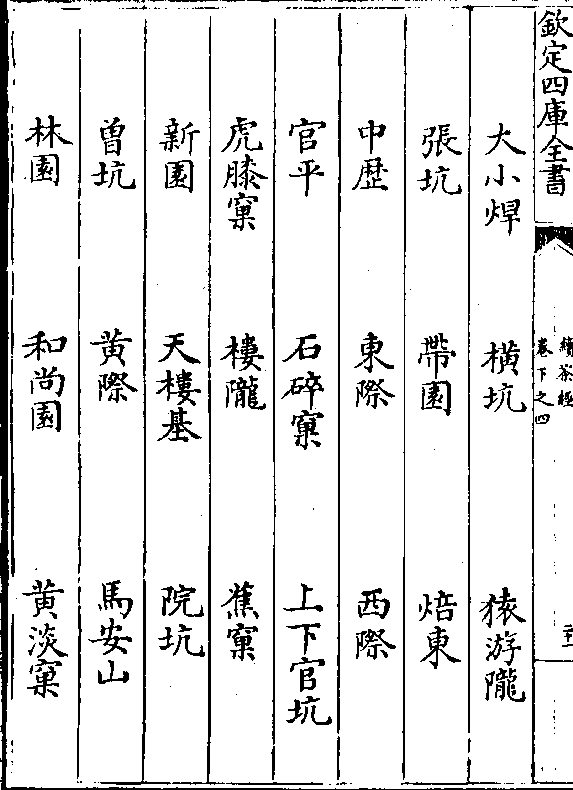 欽定四庫全書
續茶經
卷下之四
大小焊　橫坑　猿游隴
張坑　帶園　焙東
中歴　東際　西際
官平　石碎窠　上下官坑
虎膝窠　樓隴　蕉窠
新園　天樓基　院坑
曽坑　黄際　馬安山
林園　和尚園　黄淡窠